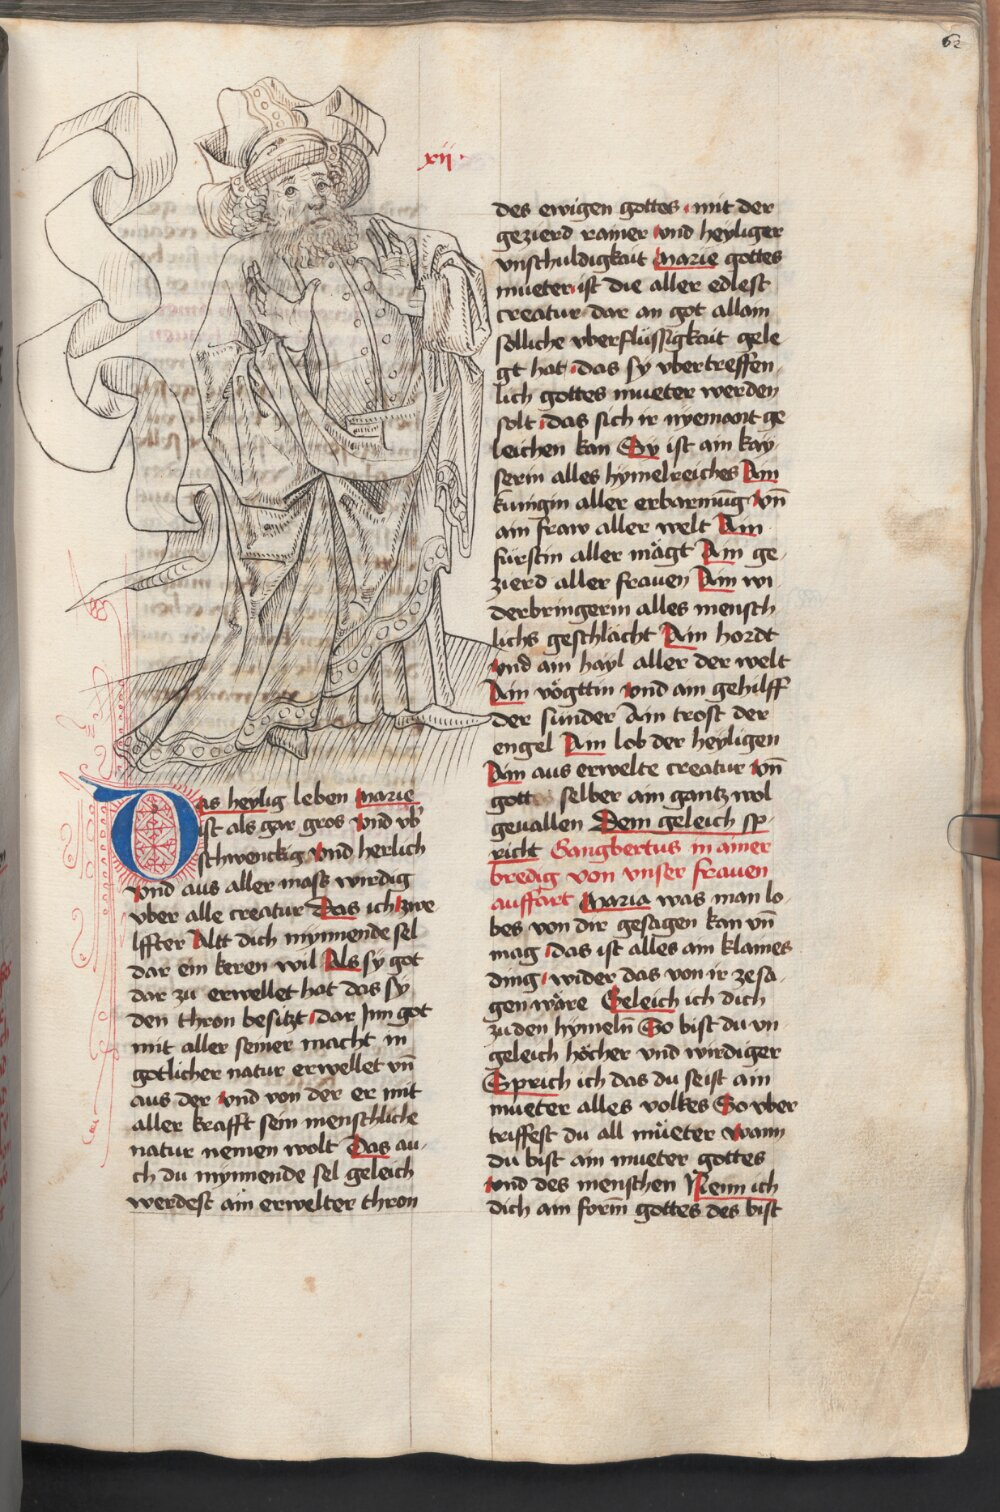 62
xij·
Das heylig leben Marie
ist als gar gros vnd vb̉
schwenckig vnd herlich
vnd aus aller mass wirdig
vber alle creatur Das ich zwe
lffter Altt dich mynnende sel
dar ein keren wil Als sy got
dar zu erwellet hat das sy
den thron besitzt dar Inn got
mit aller seiner macht in
gotlicher natur erwellet vn̄
aus der vnd von der er mit
aller krafft sein menschliche
natur nemen wolt Das au-
ch du mynnende sel geleich
werdest ain erwelter thron
des ewigen gottes mit der
gezierd rainer vnd heyliger
vnschuldigkait Marie gottes
mueter ist die aller edlest
creatur dar an got allain
solliche vberflüssigkait gele
gt hat das sy vbertreffen
lich gottes mueter werden
solt das sich ir nyemant ge
leichen kan Sy ist ain kay
serin alles hymelreiches Ain
kunigin aller erbarmūg vn̄
ain fraw aller welt Ain
fürstin aller mägt Ain ge-
zierd aller frauen Ain wi
derbringerin alles mensch
lichs geschlächt Ain hordt
vnd ain hayl aller der welt
Ain vögttin vnd ain gehilff
der sunder Ain trost der
engel Ain lob der heyligen
Ain aus erwelte creatur vn̄
gott selber ain gantz wol
geuallen Dem geleich sp-
richt Gangbertus in ainer
bredig von vnser frauen
auffart Maria was man lo-
bes von dir gesagen kan vn̄
mag das ist alles ain klaines
ding wider das von ir ze sa-
gen wäre Geleich ich dich
zu den hymeln So bist du vn-
geleich höcher vnd wirdiger
Sprich ich das du seist ain
mueter alles volkes So vber
triffest du all müeter wann
du bist ain mueter gottes
vnd des menschen Nenn ich
dich ain form gottes des bist